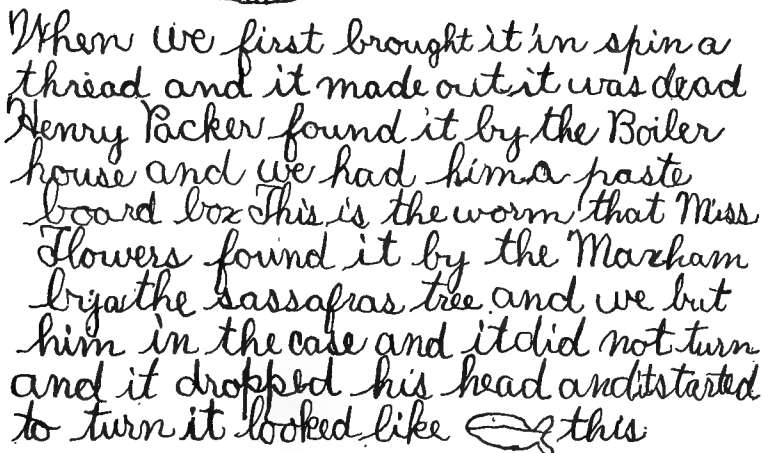 When we first brought it in spin a
thread and it made out it was dead
Henry Packer found it by the Boiler
house and we had him a paste
board box This is the worm that Miss
Flowers found it by the Maxham
by the sassafras tree and we but
him in the case and it did not turn
and it dropped his head and it started
to turn it looked like this